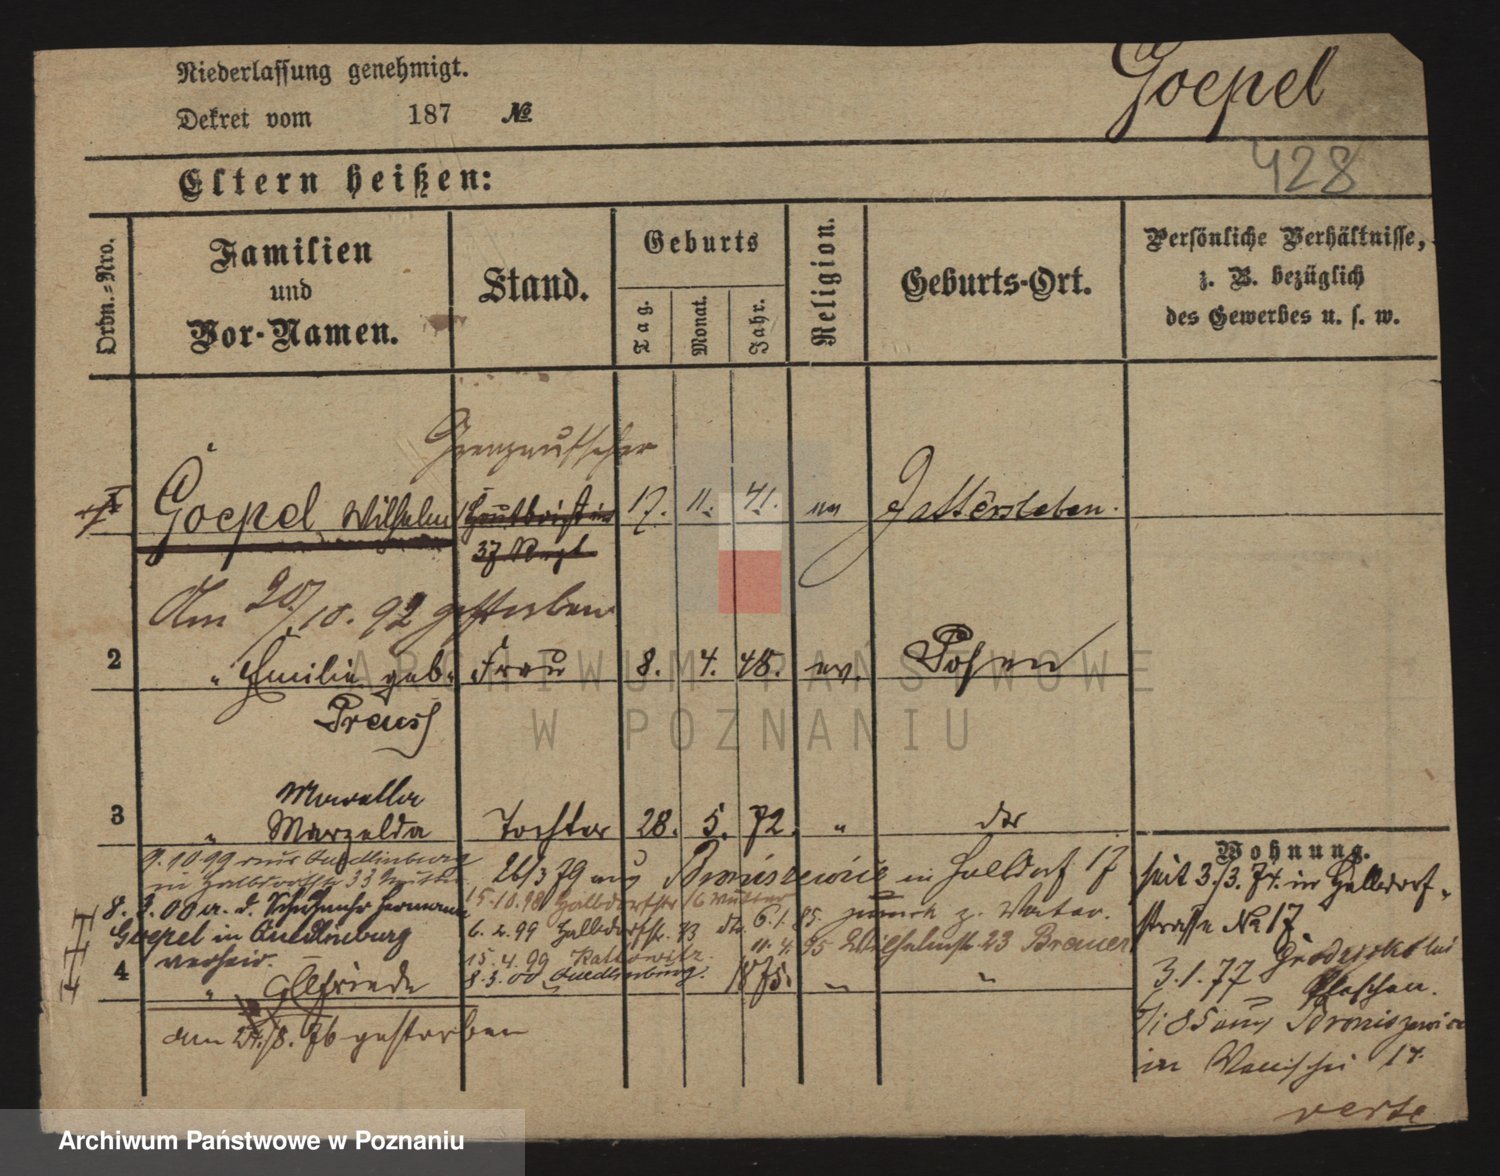 Niederlassung genehmigt.
Goepel
Dekret vom 187 №
428
Eltern heißen:
Ordn.-Nro.
Familien
und
Vor-Namen.
Stand.
Geburts
Tag.
Monat.
Jahr.
Religion.
Geburts-Ort.
Persönliche Verhältnisse,
z. B. bezüglich
des Gewerbes u. s. w.
Grenzaufseher
1 Goepel Wilhelm 17. 11. 41. ev Hattersleben.
37. Regt
Am 20/10. 92 gestorben
2 " Emilie geb. Frau 8. 4. 48. ev. Posen
Preuss
Marella
3 " Marzelda Tochter 28. 5. 72. " do
Wohnung.
9.10.99 aus Quedlinburg
in Halbdorfstr 33
26/3 79 aus Broniszewice in Halbdorf 17
seit 3./3. 74. in Halbdorf-
15.10.98 Halbdorfstr 16 Mutter
8. 3. 00 a. d. Hermann
6.1.85 zurück z. Vater.
strasse No 17.
Goepel in Quedlinburg
6. 2. 99 Halbdorfstr. 33 do
11. 4. 95 Wilhelmstr. 23 Brauer
verheir.
15. 4. 99 Kattowitz.
8.3.00 Quedlinburg.
3.1.77
Pleschen.
4 " Elfriede 1875. " "
85 aus Broniszewice
am 24./8. 76 gestorben
in 17.
verte
ARCHIWUM PAŃSTWOWE
W POZNANIU
Archiwum Państwowe w Poznaniu